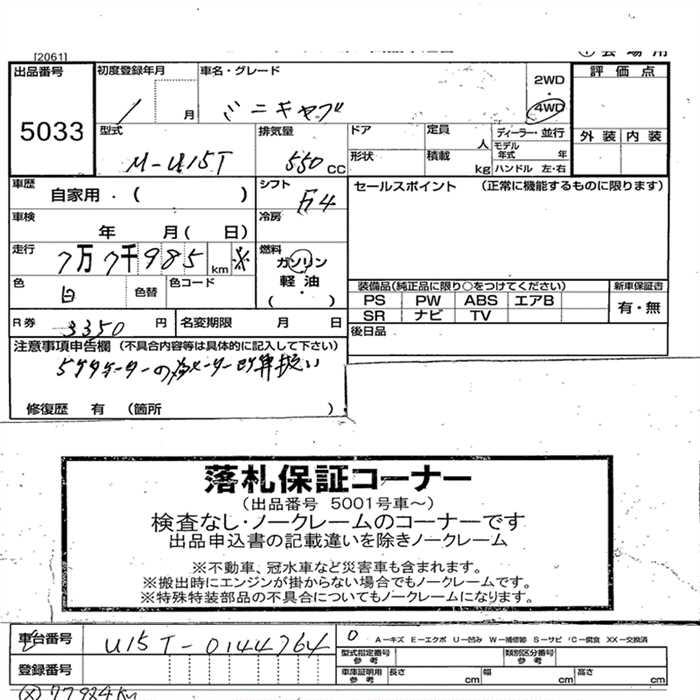 [2061]
出品番号 初度登録年月 車名・グレード 2WD 評価点
5033 / 月 ミニキャブ 4WD
型式 排気量 ドア 定員 人 ディーラー・並行 外装 内装
M-U15T 550 CC 形状 積載 kg モデル年式 年
ハンドル 左・右
車歴 自家用・( ) シフト F4 セールスポイント (正常に機能するものに限ります)
車検 年 月( 日) 冷房
走行 7万7千985 km ※ 燃料 ガソリン
軽油
( )
色 白 色替 色コード 装備品(純正品に限り○をつけてください) 新車保証書
PS PW ABS エアB 有・無
SR ナビ TV
R券 3350 円 名変期限 月 日 後日品
注意事項申告欄 (不具合内容等は具体的に記入して下さい)
5ケタメーターの為メーター改算扱い
修復歴 有 (箇所 )
落札保証コーナー
(出品番号 5001号車〜)
検査なし・ノークレームのコーナーです
出品申込書の記載違いを除きノークレーム
※不動車、冠水車など災害車も含まれます。
※搬出時にエンジンが掛からない場合でもノークレームです。
※特殊特装部品の不具合についてもノークレームになります。
車台番号 U15T-0144764 0 A-キズ E-エクボ U-凹み W-補修跡 S-サビ C-腐食 XX-交換済
型式指定番号 参考 類別区分番号 参考
登録番号 車庫証明用 参考 長さ cm 幅 cm 高さ cm
(×) 77924km